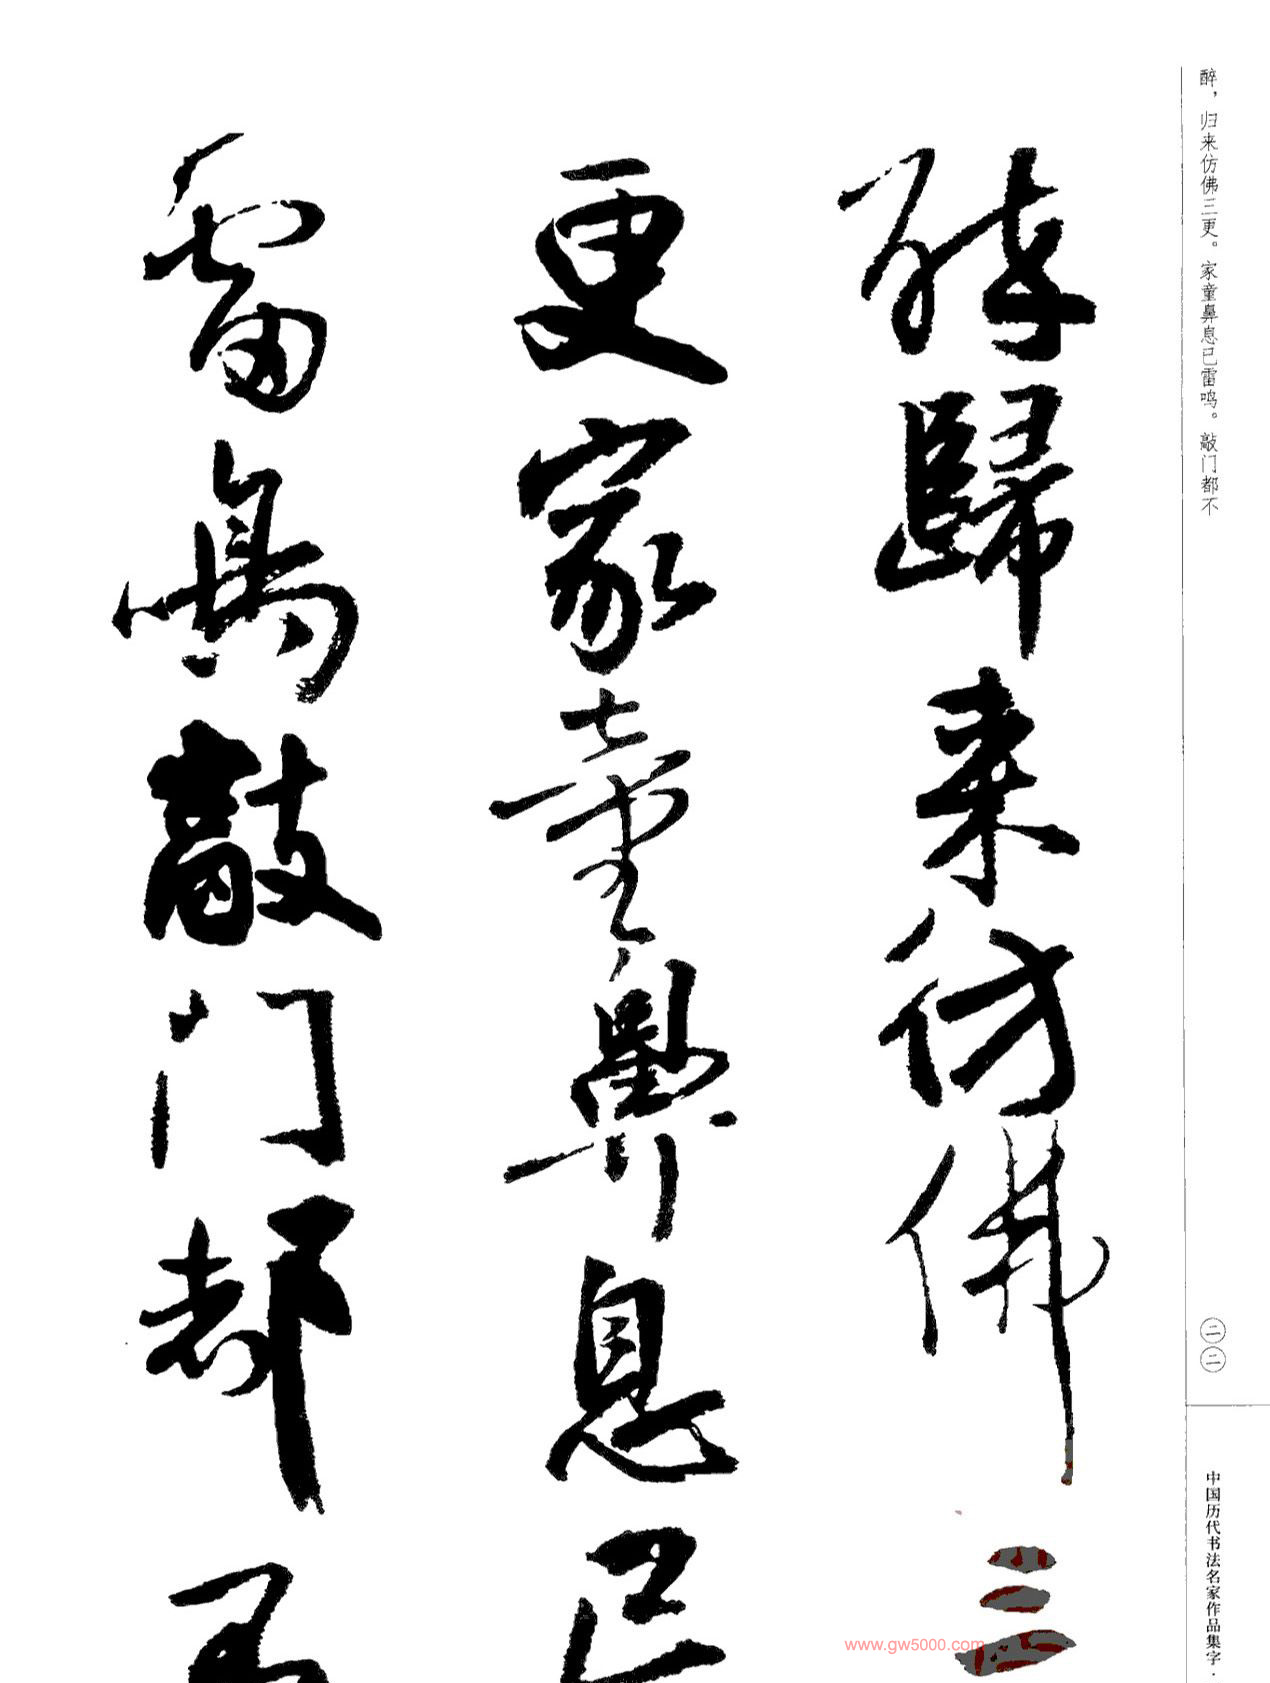 醉，归来仿佛三更。家童鼻息已雷鸣。敲门都不
醉歸来仿佛三
更家童鼻息已
雷鳴敲门都不
二二
中国历代书法名家作品集字·
www.gw5000.com